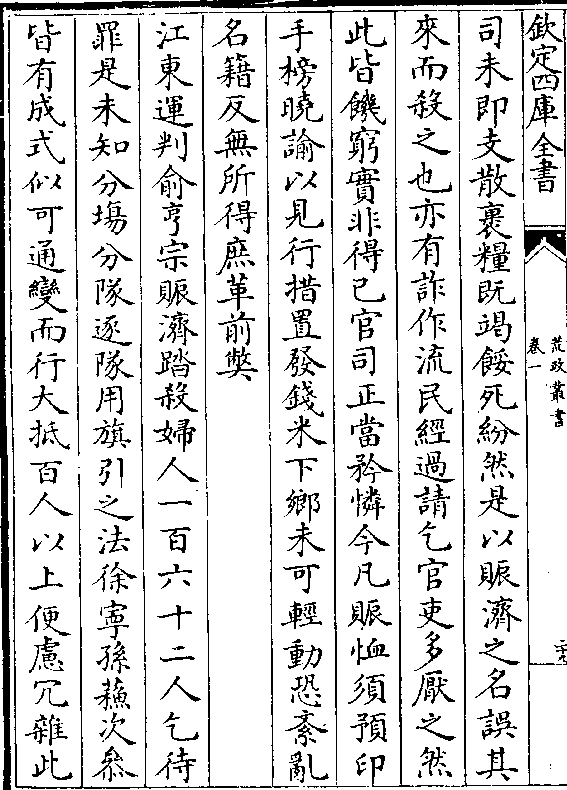 欽定四庫全書
荒政叢書
卷一
司未即支散裹糧既竭餒死紛然是以賑濟之名誤其
來而殺之也亦有詐作流民經過請乞官吏多厭之然
此皆饑窮實非得已官司正當矜憐今凡賑恤須預印
手榜曉諭以見行措置發錢米下鄉未可輕動恐紊亂
名籍反無所得庶革前弊
江東運判俞亨宗賑濟踏殺婦人一百六十二人乞待
罪是未知分場分隊逐隊用旗引之法徐寧孫蘓次叅
皆有成式似可通變而行大抵百人以上便慮冗雜此